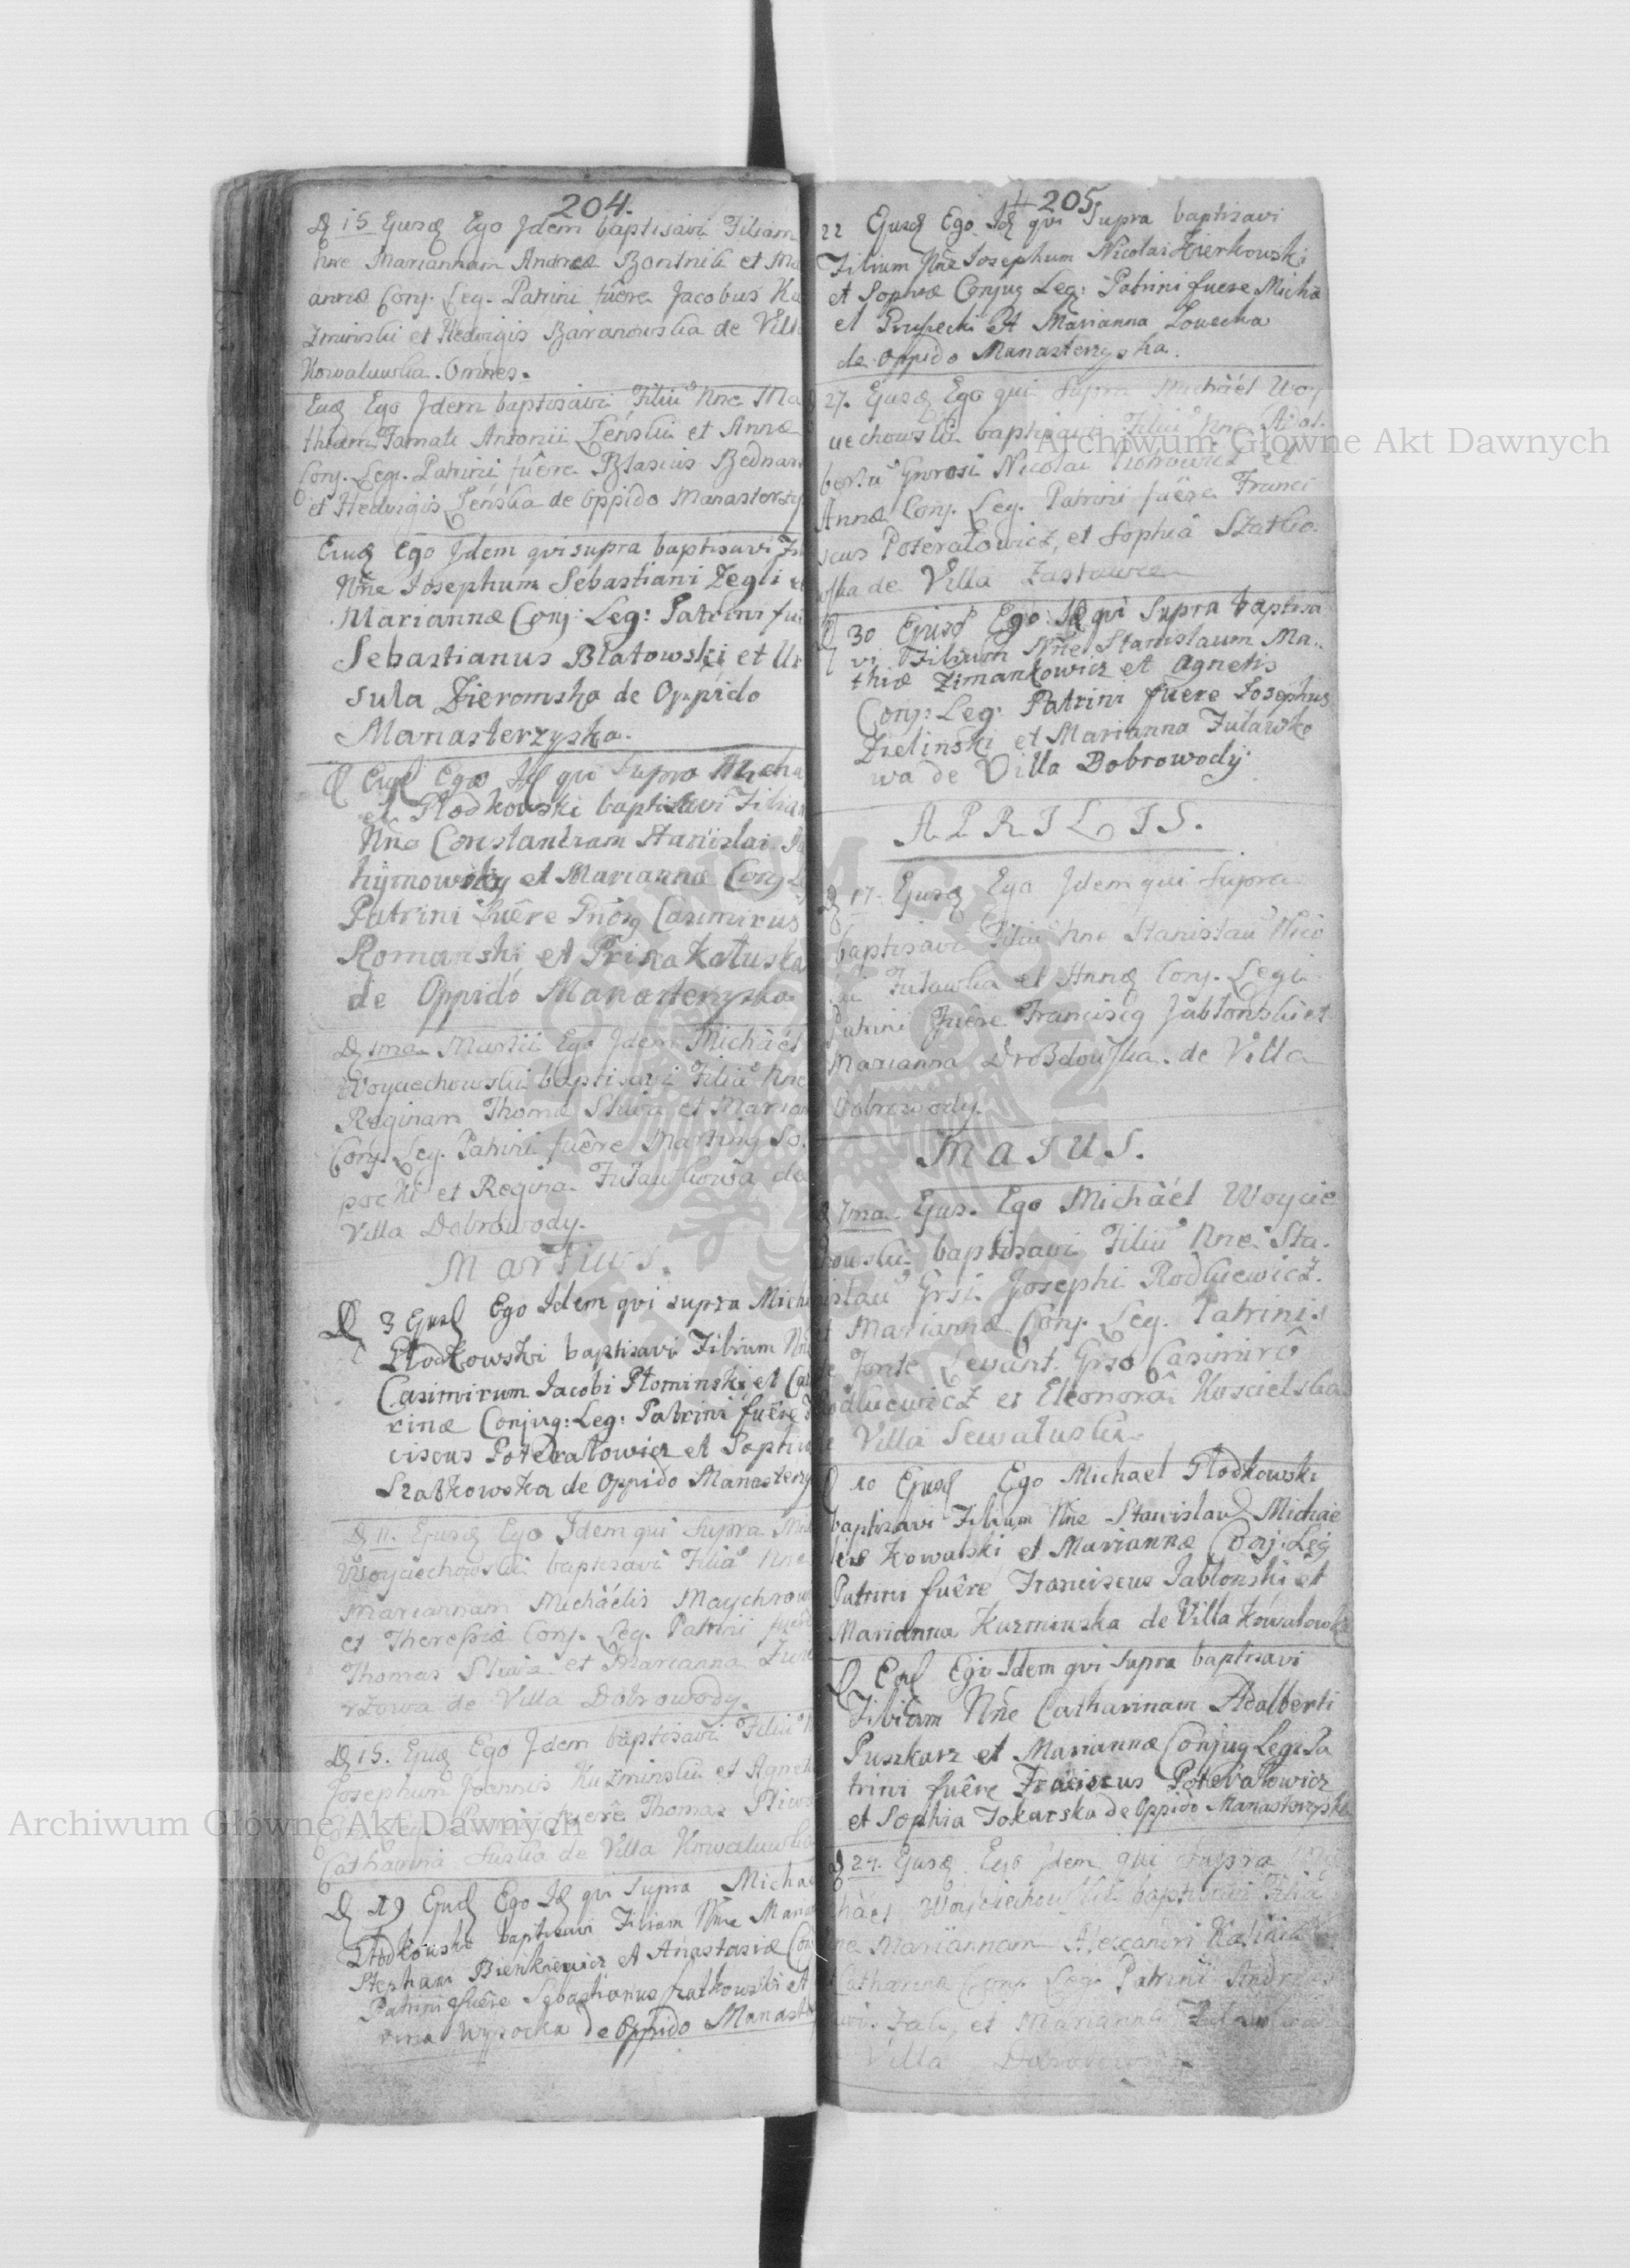 204.
D 15 Ejusq Ego Jdem baptisavi Filiam
Nne Mariannam Andreæ Bontnik et Ma
annæ Conj. Leg. Patrini fuêre Jacobus Ku
zminski et Hedvigis Baranowska de Villa
Kowaluwka. Omnes.
Eusq Ego Jdem baptisavi Filiũ Nne Ma
thiam Famati Antonii Leński et Annæ
Conj. Leg. Patrini fuêre Blasius Bednars
et Hedvigis Leńska de Oppido Manasterzy
Eiusq Ego Jdem qui supra baptisavi Fi
Nne Josephum Sebastiani Zegli et
Mariannæ Conj: Leg: Patrini fue
Sebastianus Blatowski et Ur
sula Zieromska de Oppido
Manasterzyska.
D Eusq Ego Idq qui Supra Micha
el Płodkowski baptisavi Filiam
Nne Constantiam Stanislai
hymowsky et Mariannæ Conj Le
Patrini fuêre Gnosq Casimirus
Romanski et Prisca Kałuska
de Oppido Manasterzyska.
D 1ma Martii Ego Jdem Michaël
Woyciechowski baptisavi Filiũ Nne
Reginam Thomæ Sliwa et Marian
Conj. Leg. Patrini fuêre Martinq So.
pocki et Regina Futaukowa de
Villa Dobrowody.
Martius.
D 3 Ejusq Ego Idem qui supra Micha
Płodkowski baptisavi Filium Nne
Casimirum Jacobi Płominski et Cat
rinæ Conjug: Leg: Patrini fuêre
ciscus Poteratowicz et Sophia
Szatkowska de Oppido Manasterzy
D 11. Ejusq Ego Jdem qui Supra Mich
Woyciechowski baptisavi Filiã Nne
Mariannam Michaëlis Maychrow
et Theresiæ Conj. Leg. Patrini fuêre
Thomas Sliwa et Marianna
rzowa de Villa Dobrowody.
D 15. Ejusq Ego Jdem baptisavi Filiũ N
Josephum Joannis Kuzminski et Agnet
Conj. Leg. Patrini fuerê Thomas Sliwa
Catharina Suska de Villa Kowaluwka
D 19 Ejusq Ego Idq qui Supra Michae
Płodkowski baptisavi Filiam Nne Maria
Stephani Bieńkiewicz et Anastasiæ Con
Patrini fuêre Sebastianus Szatkowski et
rina Wysocka de Oppido Manaste
205
22 Ejusq Ego Idq qui Supra baptisavi
Filium Nne Josephum Nicolai Zierkowski
et Sophiæ Conjug Leg: Patrini fuere Micha
el Prusecki Et Marianna Łowecka
de Oppido Manasterzyska.
27. Ejusq Ego qui Supra Michaël Woy
ciechowski baptisavi Filiũ Nne Adal.
bertũ Gnrosi Nicolai Piotrowicz et
Annæ Conj. Leg. Patrini fuêre Franci
scus Poteratowicz, et Sophia Szatko.
wska de Villa Zastawce
D 30 Ejusq Ego Idq qui Supra baptisa
vi Filium Nne Stanislaum Ma..
thiæ Zimankowicz et Agnetis
Conj: Leg: Patrini fuere Josephus
Zielinski et Marianna Futawko
wa de Villa Dobrowody
APRILIS.
D 17. Ejusq Ego Jdem qui Supra
baptisavi Filiũ Nne Stanislaũ Nico
lai Futawka et Annæ Conj. Legi.
Patrini fuêre Franciscq Jabłonski et
Marianna Drozdowska. de Villa
Dobrowody.
MAJUS.
D 1ma Ejus. Ego Michaël Woycie
howski baptisavi Filiũ Nne Sta.
nislaũ Grsi. Josephi Rodkiewicz.
et Mariannæ Conj. Leg. Patrinis
de Fonte Levant. Grso Casimirô
Rodkiewicz et Eleonorâ Koscielska
de Villa Sewaluska.
D 10 Ejusq Ego Michael Płodkowski
baptisavi Filium Nne Stanislaũ Michae
lis Kowalski et Mariannæ Conj: Leg
Patrini fuêre Franciscus Jabłonski et
Marianna Kuzminska de Villa Kowalowka
D Eusq Ego Idem qui supra baptisavi
Filiam Nne Catharinam Adalberti
Puszkarz et Mariannæ Conjug Legi Pa
trini fuêre Franciscus Poteratowicz
et Sophia Tokarska de Oppido Manasterzyska
D 24. Ejusq Ego Jdem qui Supra Mic
haël Woyciechowski baptisavi Filiã
Nne Mariannam Alexandri Kalinia
Catharinæ Conj. Leg. Patrini Andreas
et Marianna
Villa
Archiwum Główne Akt Dawnych
Archiwum Główne Akt Dawnych